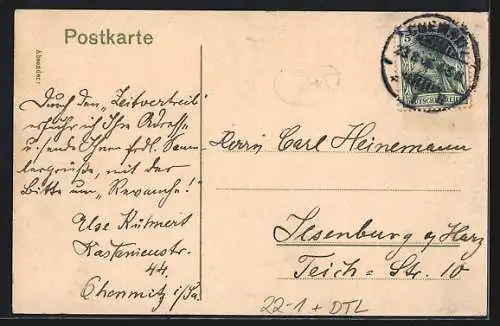 Postkarte
Absender:
Durch den „Zeitvertreib"
erfuhr ich Ihre Adresse
u. sende Ihnen frdl. Samm-
lergrüße, mit der
Bitte um „Revanche!"
Ilse Kühnert
Kastanienstr.
44.
Chemnitz i/Sa.
CHEMNITZ
5
DEUTSCHES REICH
Herrn Carl Heinemann
Ilsenburg a/Harz
Teich-Str. 10
22-1 + DTL